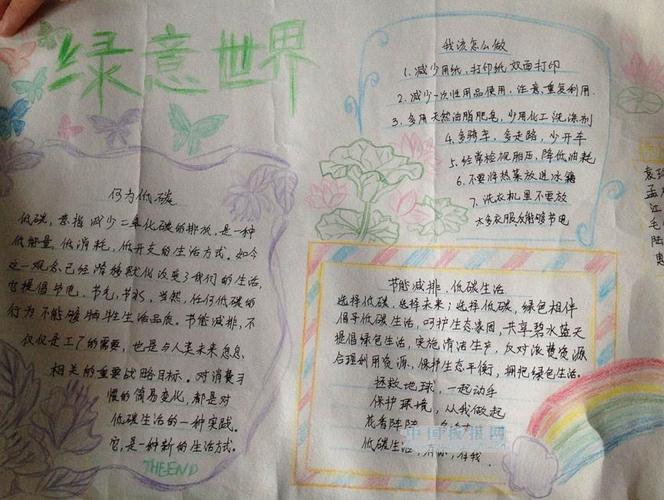 绿意世界
何为低碳
低碳,意指减少二氧化碳的排放,是一种
低能量、低消耗、低开支的生活方式。如今
这一观念已经潜移默化改变了我们的生活,
它提倡节电、节气、节水,当然,任何低碳的
行为不能够牺牲生活品质。节能减排,不
仅仅是工厂的需要,也是与人类未来息息
相关的重要战略目标。对消费习
惯的简易变化,都是对
低碳生活的一种实践。
它,是一种新的生活方式。
THE END
我该怎么做
1、减少用纸,打印纸双面打印
2、减少一次性用品使用,注意重复利用.
3、多用天然油脂肥皂,少用化工洗涤剂
4、多骑车,多走路,少开车
5、经常检视胎压,降低油耗
6、不要将热菜放进冰箱
7、洗衣机里不要放
太多衣服反能够节电
节能减排,低碳生活
选择低碳,选择未来;选择低碳,绿色相伴
倡导低碳生活,呵护生态家园,共享碧水蓝天
提倡绿色生活,实施清洁生产,反对浪费资源
合理利用资源,保护生态平衡,拥抱绿色生活.
拯救地球,一起动手
保护环境,从我做起
花香阵阵
低碳生活
中国板报网
孟
江
毛
陆